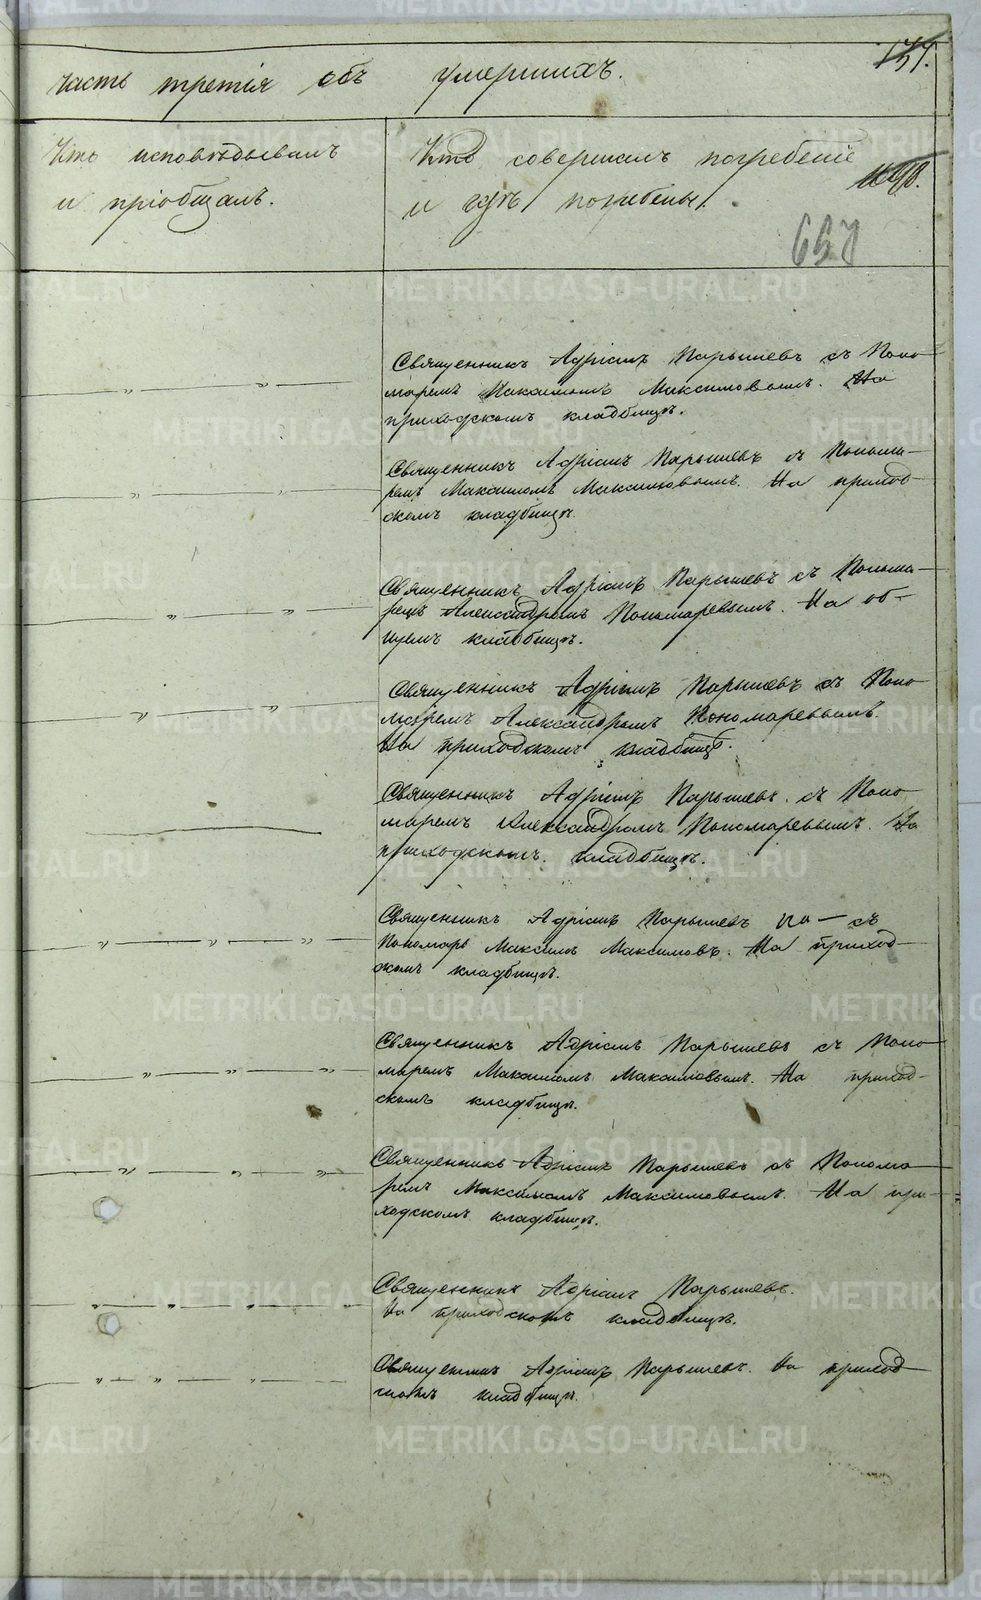 Часть третія объ умершихъ.
Кто исповѣдывалъ
и пріобщалъ.
Кто совершалъ погребеніе
и гдѣ погребены.
Священникъ Адріанъ Парышевъ съ Поно
маремъ Максимомъ Максимовымъ. На
приходскомъ кладбищѣ.
Священникъ Адріанъ Парышевъ съ Понома-
ремъ Максимомъ Максимовымъ. На приход-
скомъ кладбищѣ.
Священникъ Адріанъ Парышевъ съ Понома-
ремъ Александромъ Пономаревымъ. На об-
щемъ кладбищѣ.
Священникъ Адріанъ Парышевъ съ Поно
маремъ Александромъ Пономаревымъ.
На приходскомъ кладбищѣ.
Священникъ Адріанъ Парышевъ съ Поно
маремъ Александромъ Пономаревымъ. На
приходскомъ кладбищѣ.
Священникъ Адріанъ Парышевъ по — съ
Пономарь Максимъ Максимовъ. На приход-
скомъ кладбищѣ.
Священникъ Адріанъ Парышевъ съ Поно
маремъ Максимомъ Максимовымъ. На приход-
скомъ кладбищѣ.
Священникъ Адріанъ Парышевъ съ Понома
ремъ Максимомъ Максимовымъ. На при-
ходскомъ кладбищѣ.
Священникъ Адріанъ Парышевъ.
На приходскомъ кладбищѣ.
Священникъ Адріанъ Парышевъ. На приход
скомъ кладбищѣ.
METRIKI.GASO-URAL.RU